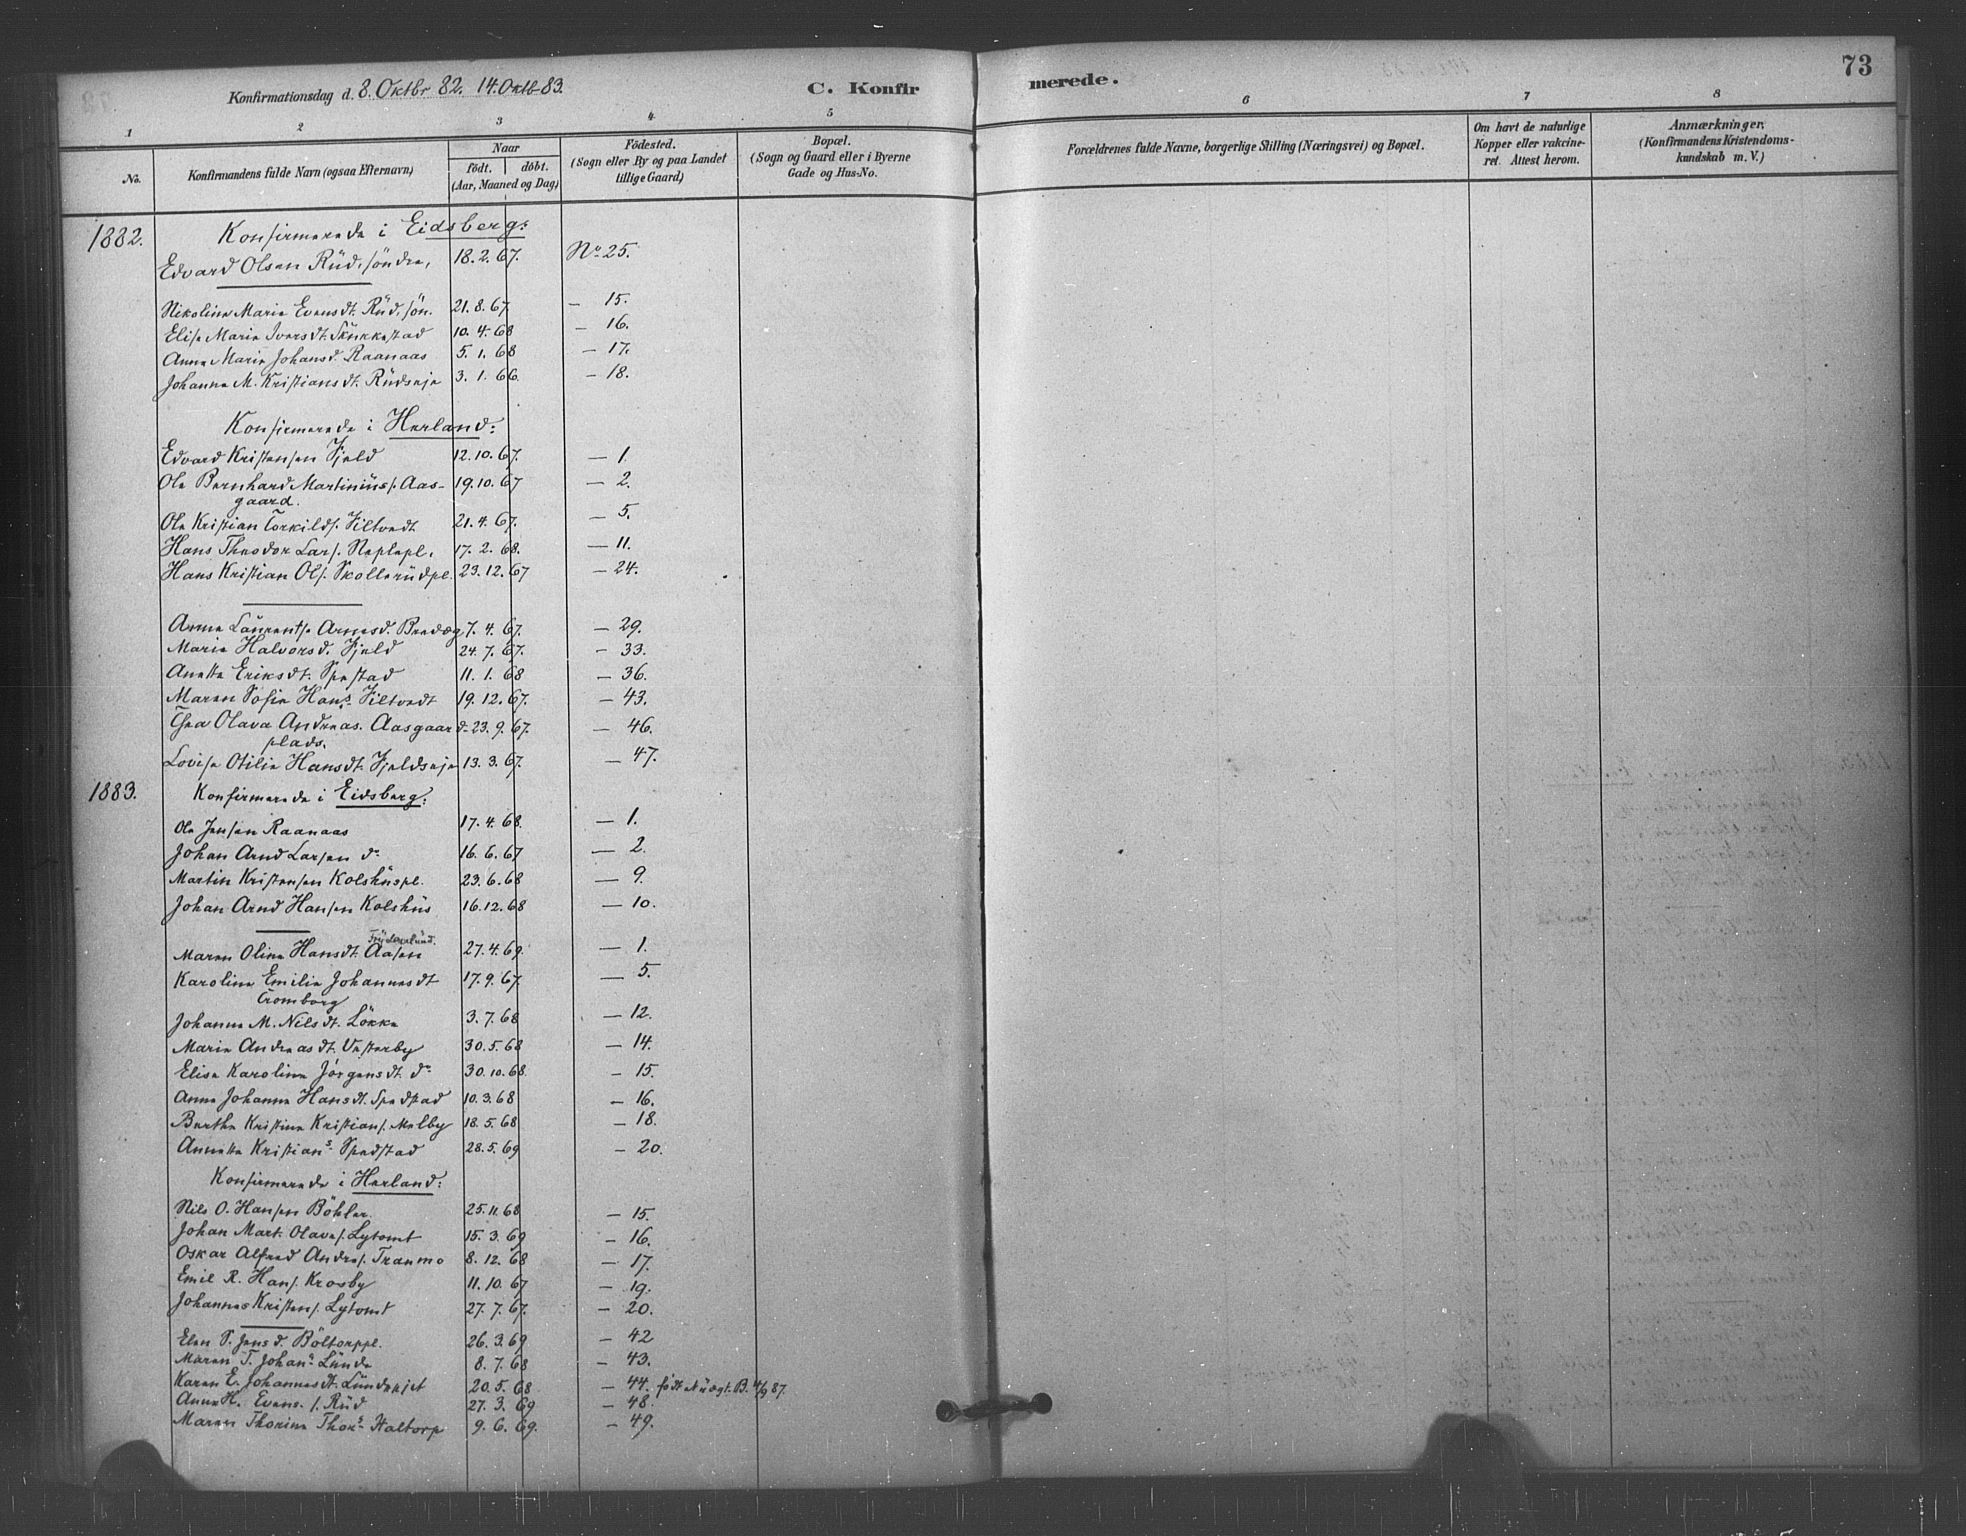 Konfirmationsdag d. 8. Oktbr 82. 14. Oktb 83.
C. Konfir
merede.
73
1 2 3 4 5 6 7 8
No.
Konfirmandens fulde Navn (ogsaa Efternavn)
Naar
födt. döbt.
(Aar, Maaned og Dag)
Födested.
(Sogn eller By og paa Landet
tillige Gaard)
Bopæl.
(Sogn og Gaard eller i Byerne
Gade og Hus-No.
Forældrenes fulde Navne, borgerlige Stilling (Næringsvei) og Bopæl.
Om havt de naturlige
Kopper eller vakcine-
ret. Attest herom.
Anmærkninger.
(Konfirmandens Kristendoms-
kundskab m. V.)
1882. Konfirmerede i Eidsberg:
Edvard Olsen Rüd, söndre, 18. 2. 67. No 25.
Nikoline Marie Evensdt. Rüd, sön. 21. 8. 67 — 15.
Elise Marie Iversdt. 10. 4. 68 — 16.
Anne Marie Johansd. Raanaas 5. 1. 68 — 17.
Johanne M. Kristiansdt. Rüdseje 3. 1. 66. — 18.
Konfirmerede i Herland:
Edvard Kristensen Fjeld 12. 10. 67. — 1.
Ole Bernhard Martiniüs. Aas- 19. 10. 67 — 2.
gaard.
Ole Kristian Torkilds. Filtvedt 21. 4. 67. — 5.
Hans Theodor Lars. 17. 2. 68. — 11.
Hans Kristian Ols. Skollerüdpl. 23. 12. 67 — 24.
Anne Laurentse Arnesd. 7. 4. 67. — 29.
Marie Halvorsd. Fjeld 24. 7. 67. — 33.
Anette Eriksdt. Spestad 11. 1. 68 — 36.
Maren Sofie Hans. Filtvedt 19. 12. 67. — 43.
Thea Olava Andreas. Aasgaard- 23. 9. 67. — 46.
plads.
Lovise Otilie Hansdt. Fjeldseje 13. 3. 67. — 47.
1883. Konfirmerede i Eidsberg:
Ole Jensen Raanaas 17. 4. 68. — 1.
Johan Arnd Larsen do 16. 6. 67 — 2.
Martin Kristensen Kolshüspl. 23. 6. 68 — 9.
Johan Arnd Hansen Kolshüs 16. 12. 68 — 10.
Maren Oline Hansdt. Aasen 27. 4. 69. — 1.
Karoline Emilie Johannesdt 17. 9. 67 — 5.
Tromborg
Johanne M. Nilsdt. Lökke 3. 7. 68 — 12.
Marie Andreasdt. Vesterby 30. 5. 68 — 14.
Elise Karoline Jörgensdt. do 30. 10. 68. — 15.
Anne Johanne Hansdt. Spedstad 10. 3. 68 — 16.
Berthe Kristine Kristians. Melby 18. 5. 68 — 18.
Annette Kristians. Spedstad 28. 5. 69 — 20.
Konfirmerede i Herland:
Nils O. Hansen Böhler. 25. 11. 68 — 15.
Johan Mart. Olavs. Lytomt 15. 3. 69 — 16.
Oskar Alfred Andrs. Tranmo 8. 12. 68 — 17.
Emil R. Hans. Krosby 11. 10. 67 — 19.
Johannes Kristens. Lytomt 27. 7. 67. — 20.
Elen S. Jensd. Böltorppl. 26. 3. 69 — 42
Maren T. Johans Lünde 8. 7. 68 — 43.
Karen E. Johannesdt. Lündejet 20. 5. 68 — 44. födt Uægt. B. 4/9 87.
Anne H. Evens. Rüd 27. 3. 69 — 48.
Maren Thorine Thors. Haltorp 9. 6. 69. — 49.